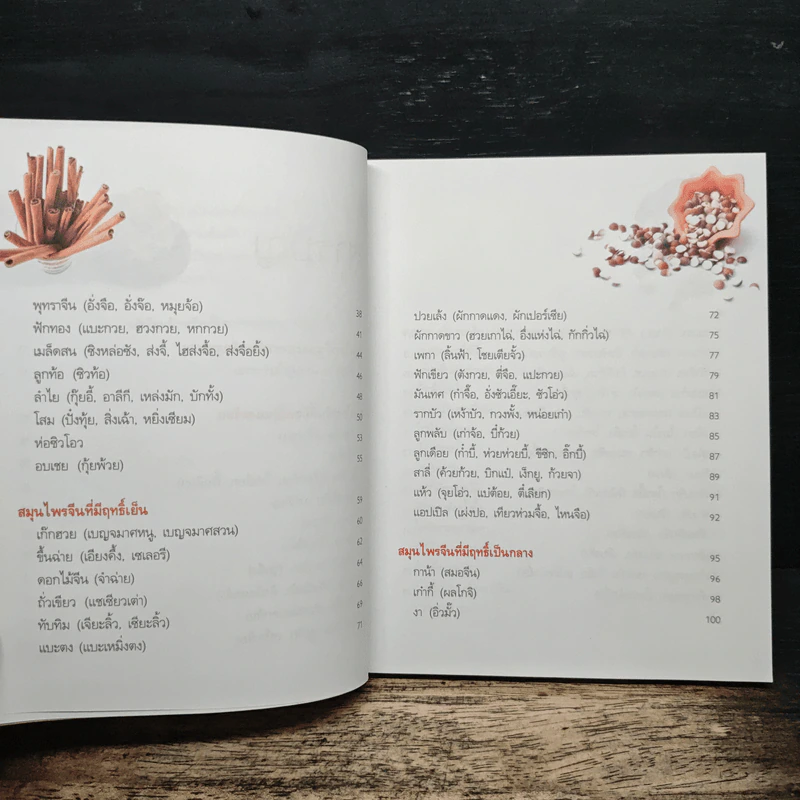 พุทราจีน (อั่งจือ, อั่งจ๊อ, หมุยจ้อ) 38
ฟักทอง (แบะกวย, ฮวงกวย, หกกวย) 41
เมล็ดสน (ซิงหล่อซัง, ส่งจี้, ไฮส่งจื้อ, ส่งจื่อยิ้ง) 44
ลูกท้อ (ซิวท้อ) 46
ลำไย (กุ๊ยอี้, อาลีกี, เหล่งมัก, บักทั้ง) 48
โสม (ปั้งทุ้ย, สิ่งเฉ้า, หยิ่งเซียม) 50
ห่อซิวโอว 53
อบเชย (กุ้ยพ้วย) 55
สมุนไพรจีนที่มีฤทธิ์เย็น 59
เก๊กฮวย (เบญจมาศหนู, เบญจมาศสวน) 60
ขึ้นฉ่าย (เอียงคึ้ง, เซเลอรี) 62
ดอกไม้จีน (จำฉ่าย) 64
ถั่วเขียว (แชเซียวเต่า) 66
ทับทิม (เจียะลิ้ว, เซียะลิ้ว) 69
แบะตง (แบะเหมิ่งตง) 71
ปวยเล้ง (ผักกาดแดง, ผักเปอร์เซีย) 72
ผักกาดขาว (ฮวยเกาไฉ่, อึ่งแห่งไฉ่, กักกิ่วไฉ่) 75
เพกา (ลิ้นฟ้า, โชยเตียจั้ว) 77
ฟักเขียว (ตังกวย, ตี่จือ, แปะกวย) 79
มันเทศ (กำจื๊อ, อั่งซัวเอี๊ยะ, ซัวโอ่ว) 81
รากบัว (เหง้าบัว, กวงพั้ง, หน่อยเก๋า) 83
ลูกพลับ (เก่าจ้อ, บี่ก้วย) 85
ลูกเดือย (ก๋ำบี้, ห่วยห่วยบี้, ชีซิก, อิ๊กบี้) 87
สาลี่ (ค้วยก้วย, บิกแป๋, เง็กยู, ก้วยจา) 89
แห้ว (จุยโอ่ว, แบ่ต้อย, ตี่เลียก) 91
แอปเปิล (เผ่งปอ, เทียวห่วมจื้อ, ไหนจือ) 92
สมุนไพรจีนที่มีฤทธิ์เป็นกลาง 95
กาน้า (สมอจีน) 96
เก๋ากี้ (ผลโกจิ) 98
งา (อิ่วมั้ว) 100